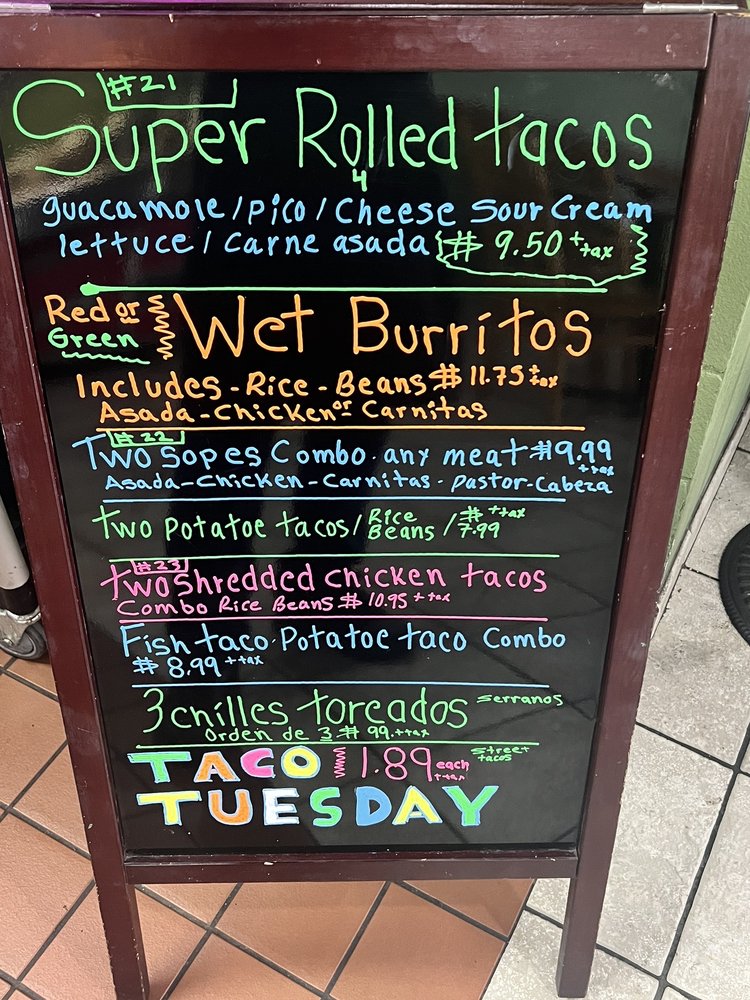 #21
Super Rolled tacos
4
guacamole / Pico / Cheese Sour Cream
lettuce / Carne asada $ 9.50 + tax
Red or Green Wet Burritos
Includes - Rice - Beans $ 11.75 + tax
Asada - Chicken or Carnitas
#22
Two Sopes Combo. any meat $9.99 + tax
Asada - Chicken - Carnitas - Pastor - Cabeza
two Potatoe tacos / Rice Beans / $ 7.99 + tax
#23
two shredded Chicken tacos
Combo Rice Beans $ 10.95 + tax
Fish taco. Potatoe taco Combo
$ 8.99 + tax
3 chilles toreados serranos
Orden de 3 $ 99. + tax
TACO 1.89 each + tax street tacos
TUESDAY